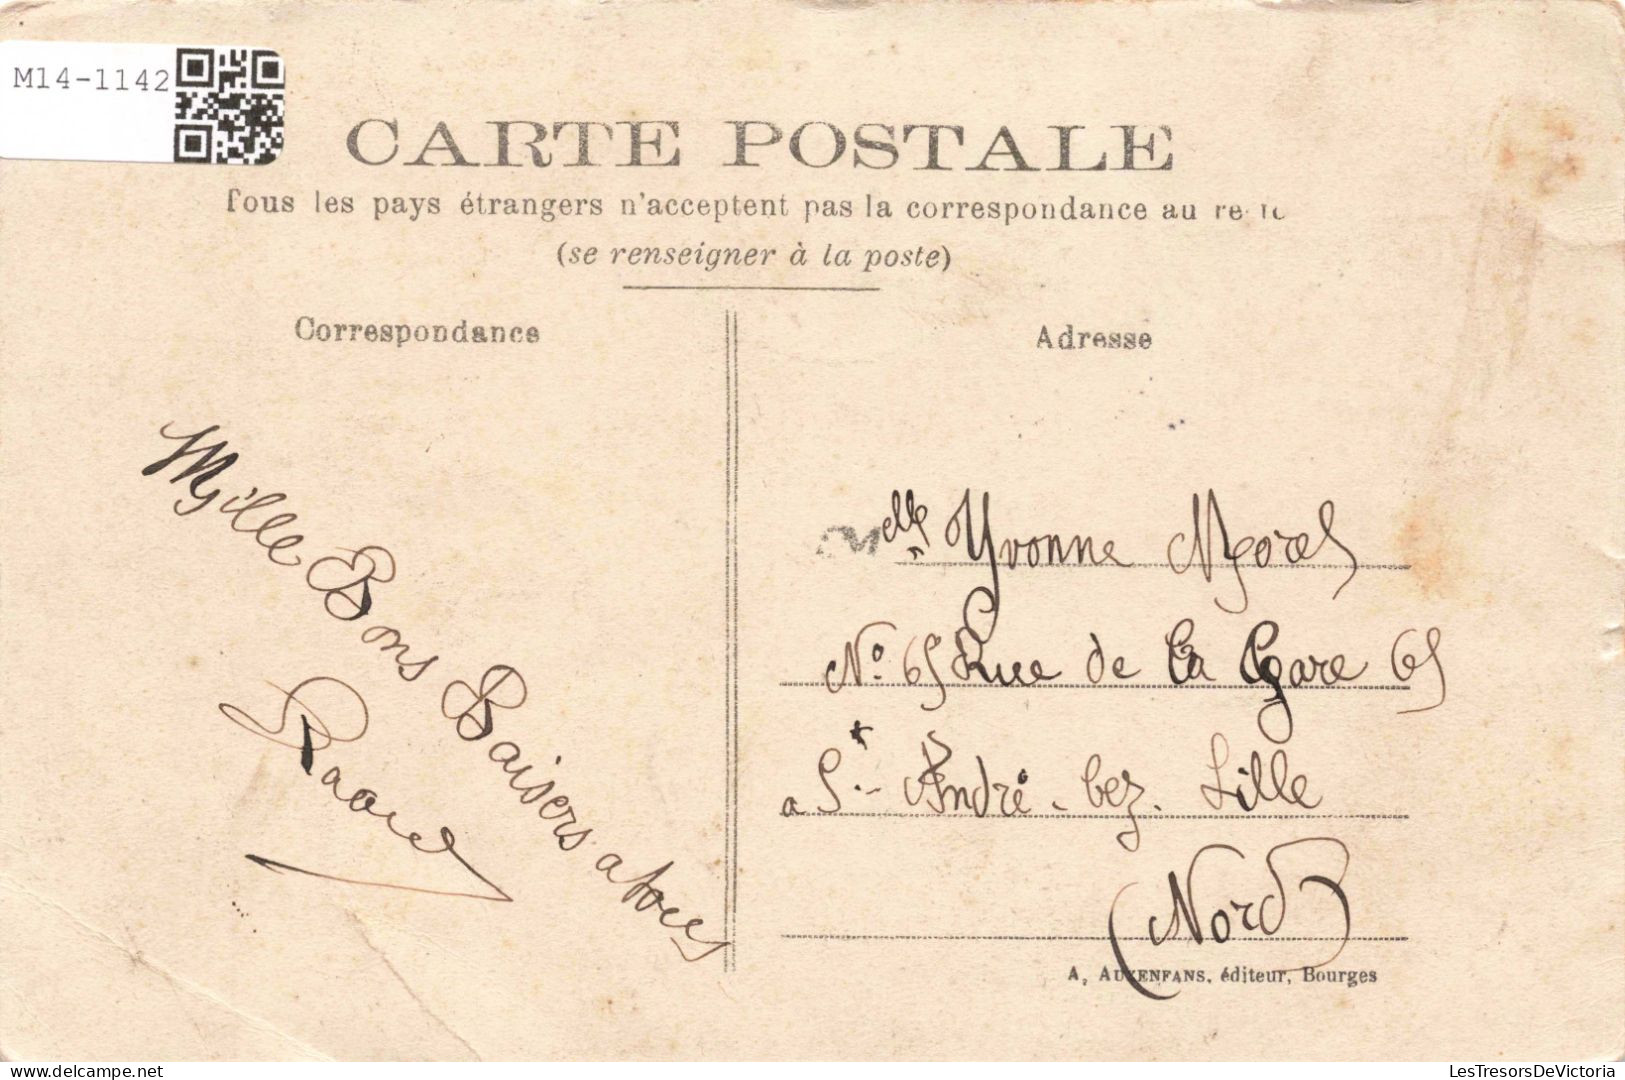 M14-1142
CARTE POSTALE
Tous les pays étrangers n'acceptent pas la correspondance au
(se renseigner à la poste)
Correspondance
Adresse
Mille Bons Baisers a tous
Raoul
Melle Yvonne Morel
N° 65 Rue de la Gare 65
a St André-lez-Lille
(Nord)
A. AUXENFANS, éditeur, Bourges
delcampe.net
LesTresorsDeVictoria